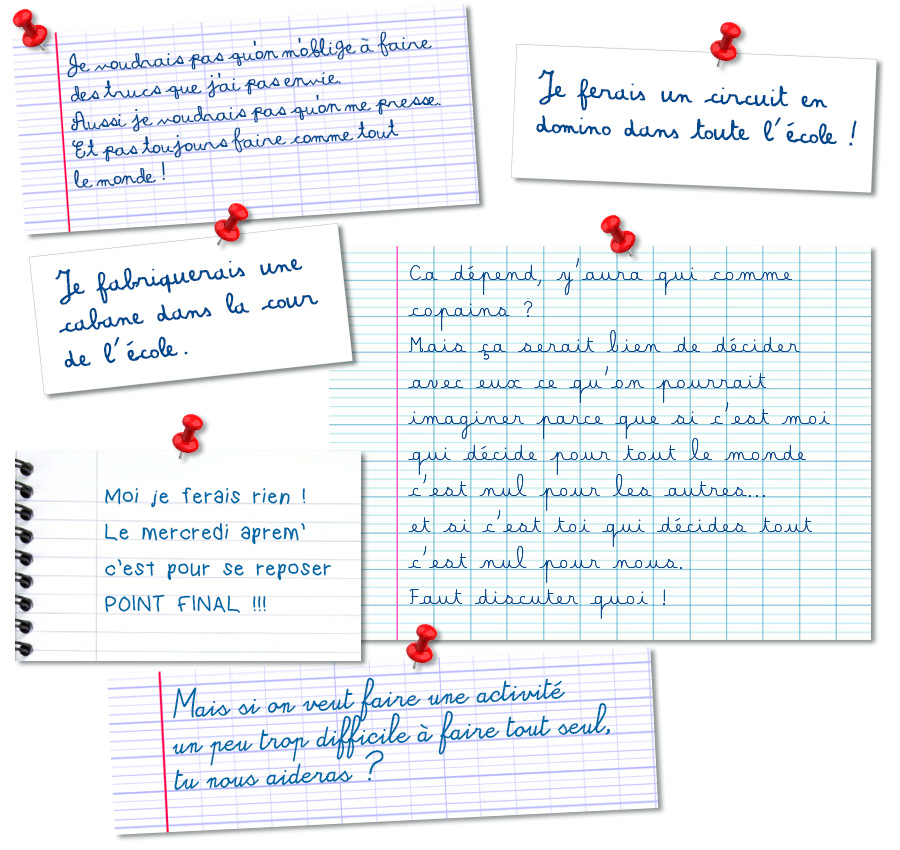 Je voudrais pas qu'on m'oblige à faire
des trucs que j'ai pas envie.
Aussi je voudrais pas qu'on me presse.
Et pas toujours faire comme tout
le monde !
Je ferais un circuit en
domino dans toute l'école !
Je fabriquerais une
cabane dans la cour
de l'école.
Ca dépend, y'aura qui comme
copains ?
Mais ça serait bien de décider
avec eux ce qu'on pourrait
imaginer parce que si c'est moi
qui décide pour tout le monde
c'est nul pour les autres...
et si c'est toi qui décides tout
c'est nul pour nous.
Faut discuter quoi !
Moi je ferais rien !
Le mercredi aprem'
c'est pour se reposer
POINT FINAL !!!
Mais si on veut faire une activité
un peu trop difficile à faire tout seul,
tu nous aideras ?